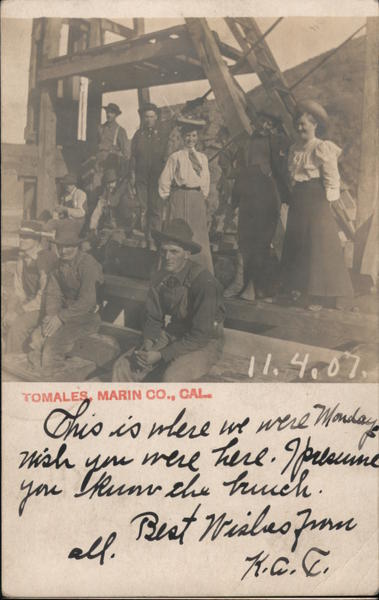 11.4.07.
TOMALES, MARIN CO., CAL.
This is where we were Monday
wish you were here. I presume
you know the bunch.
Best Wishes from
all.
K.A.T.